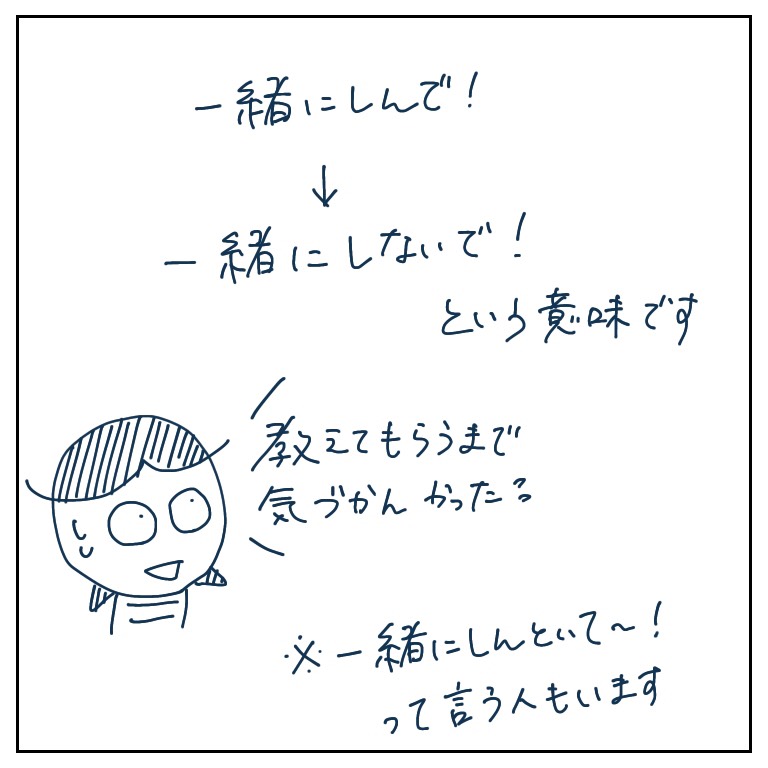 一緒にしんで！
↓
一緒にしないで！
という意味です
教えてもらうまで
気づかんかった？
※一緒にしんといて〜！
って言う人もいます